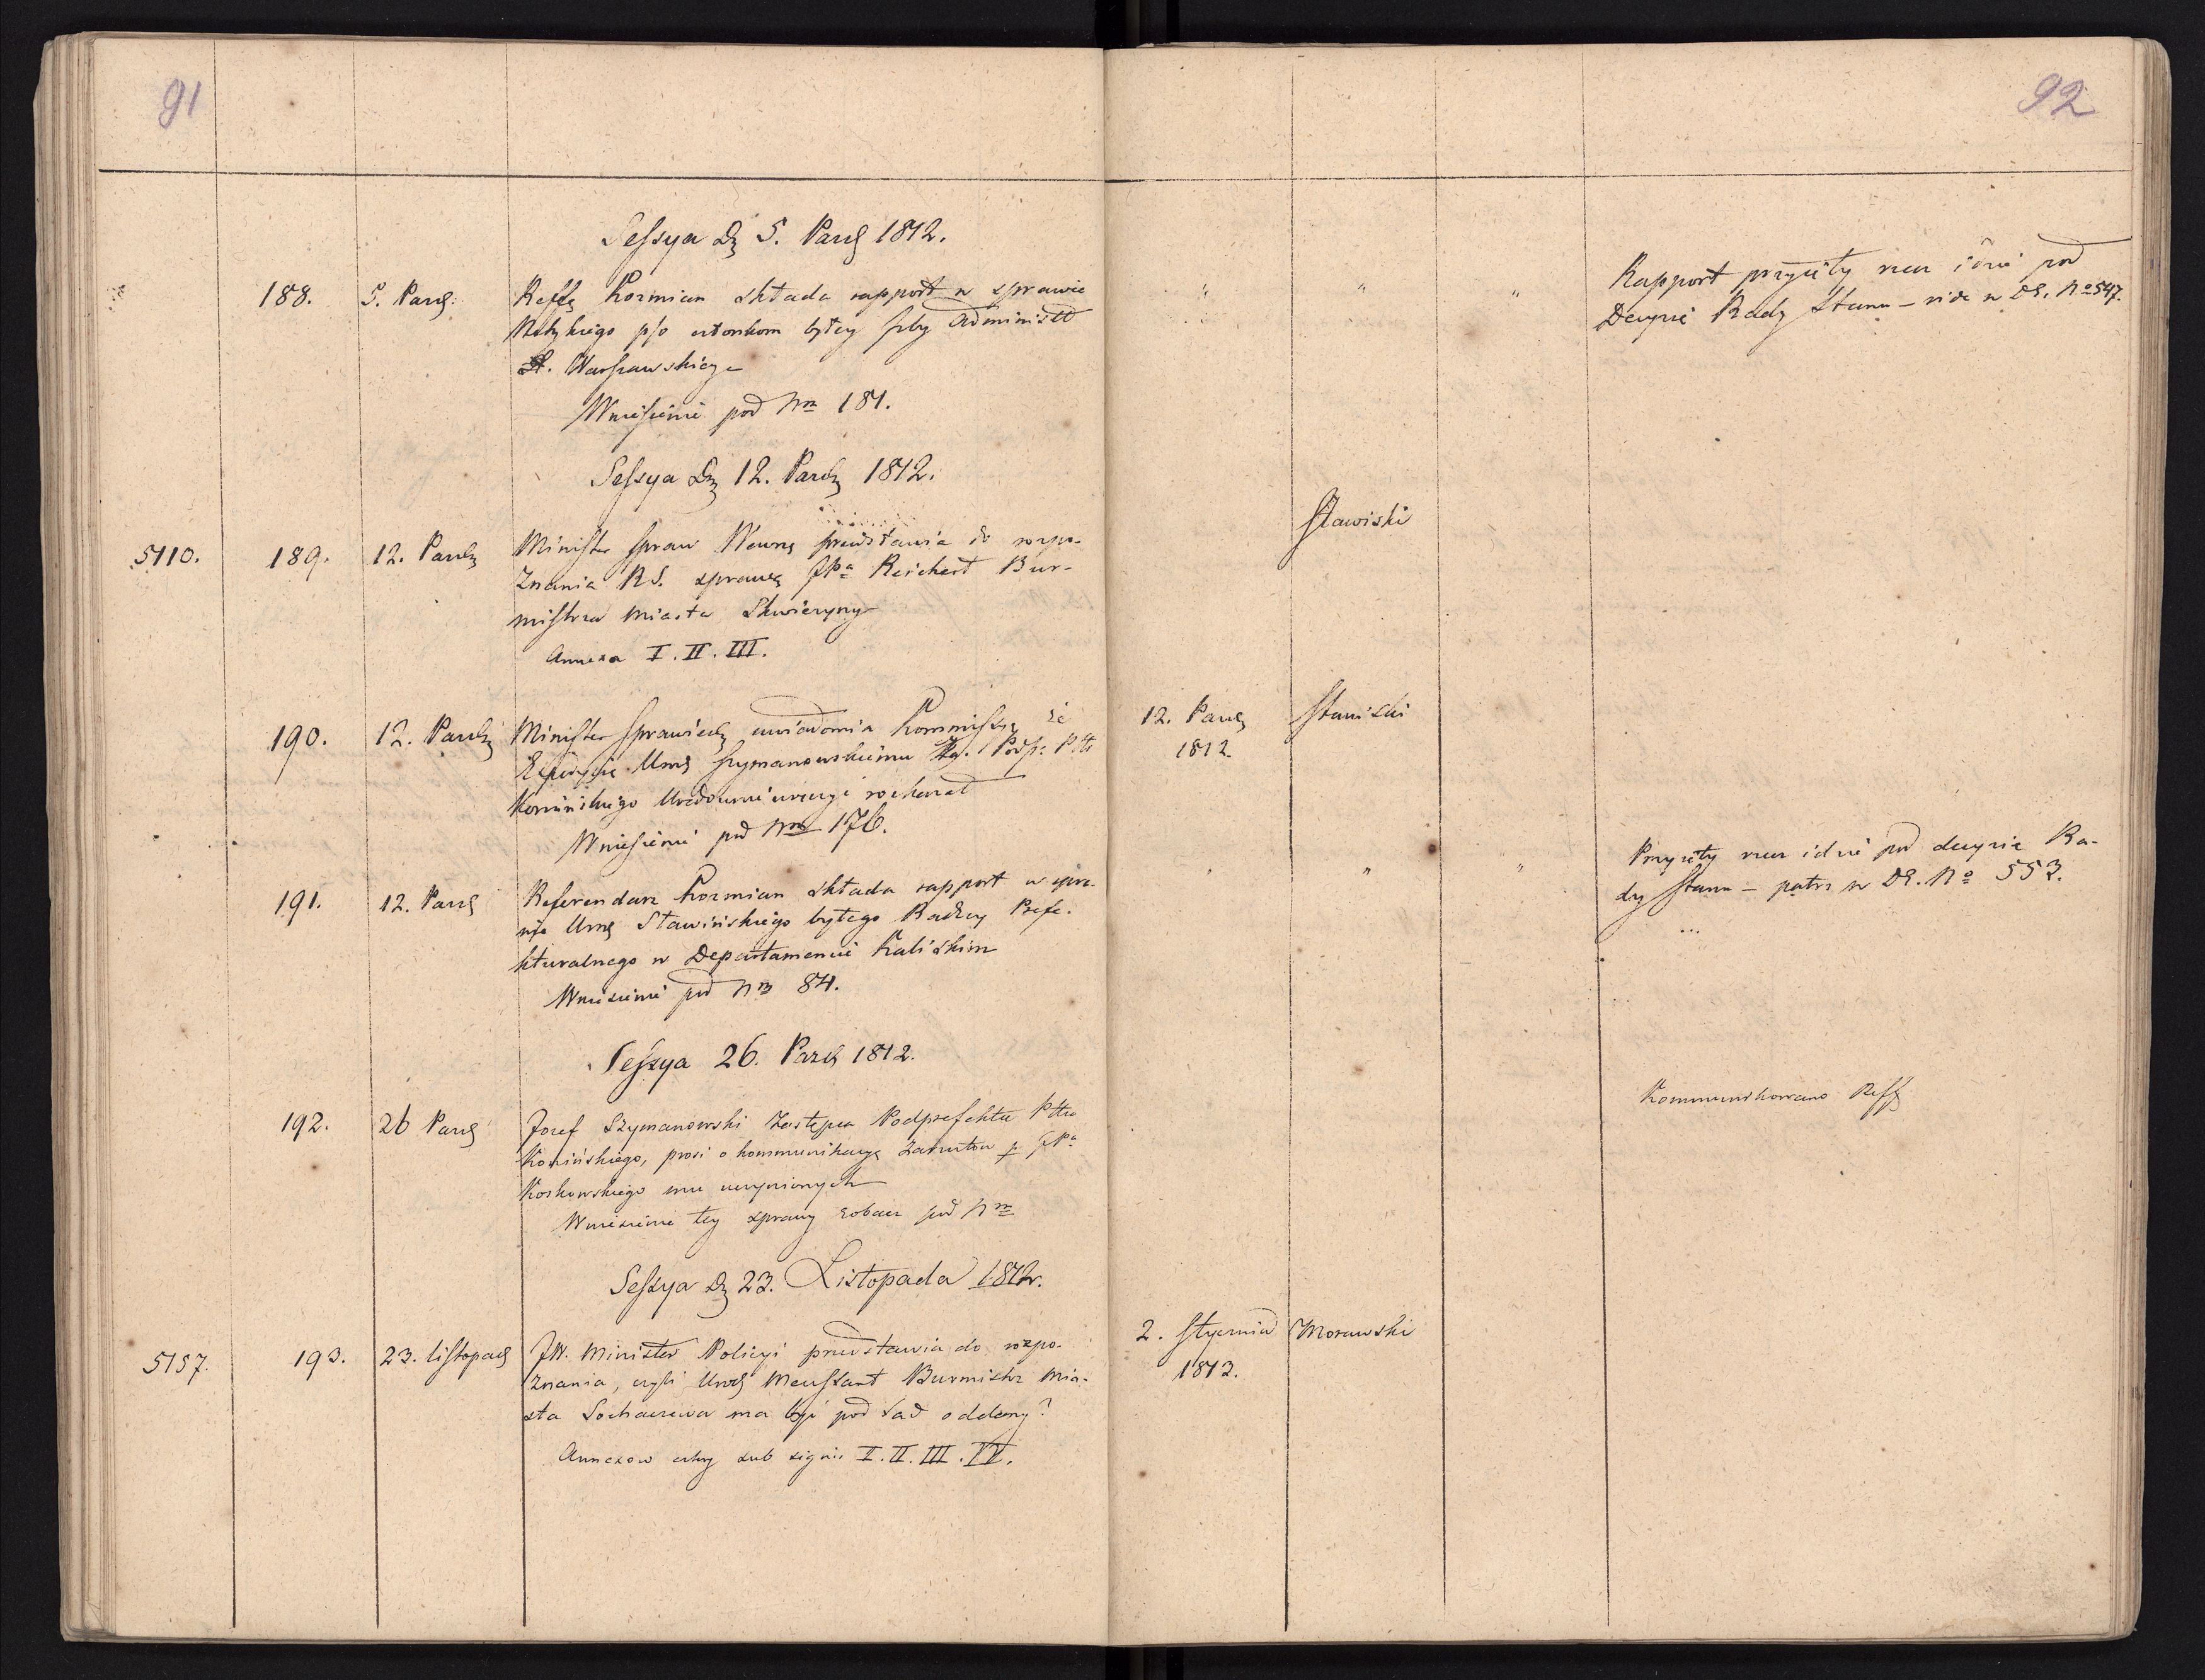 91
92
Sessya Dn 5. Paźd 1812.
188. 5. Paźd: Reffg Kozmian składa rapport w sprawie
p/o członkom byłey Izby Administr
D. Warszawskiego
Wniesienie pod Nm 181.
" " " Rapport przyięty rzecz idzie pod
Decyzie Rady Stanu – vide w DE. No 547.
Sessya Dn 12. Paźdz 1812.
5110. 189. 12. Paźdz Minister Spraw Wewnę przedstawia do rozpo-
znania RS. sprawę JPa Reichert Bur-
mistrza Miasta Skwierzyny
Annexa I. II. III.
Sławiski
190. 12. Paźdz Minister Sprawiedę uwiadomia Kommissyę że
Urog Szymanowskiemu Zas. Podp: Pttu
Konińskiego
Wniesienie pod Nm 176.
12. Paźd
1812.
191. 12. Paźd Referendarz Kozmian składa rapport w spra-
wie Urog Sławińskiego byłego Radzcy Prefe-
kturalnego w Departamencie Kaliskim
Wniesienie pod Nm 84.
" " " Przyięty rzecz idzie pod decyzie Ra-
dy Stanu – patrz w DE. No 553.
...
Sessya 26. Paźd 1812.
192. 26 Paźd Josef Szymanowski Zastępca Podprefekta Pttu
Konińskiego, prosi o kommunikacyę zarzutów p. JPa
Koskowskiego mu uczynionych
Wniesienie tey sprawy zobacz pod Nm
Kommunikowano Reff
Sessya D 23. Listopada 1812.
5157. 193. 23. listopad JW. Minister Policyi przedstawia do rozpo-
znania, czyli Urod Burmistrz Mia-
sta Sochaczewa ma być pod Sąd oddany?
Annexow cztery sub signis I. II. III. IV.
2. Stycznia
1813.
Morawski